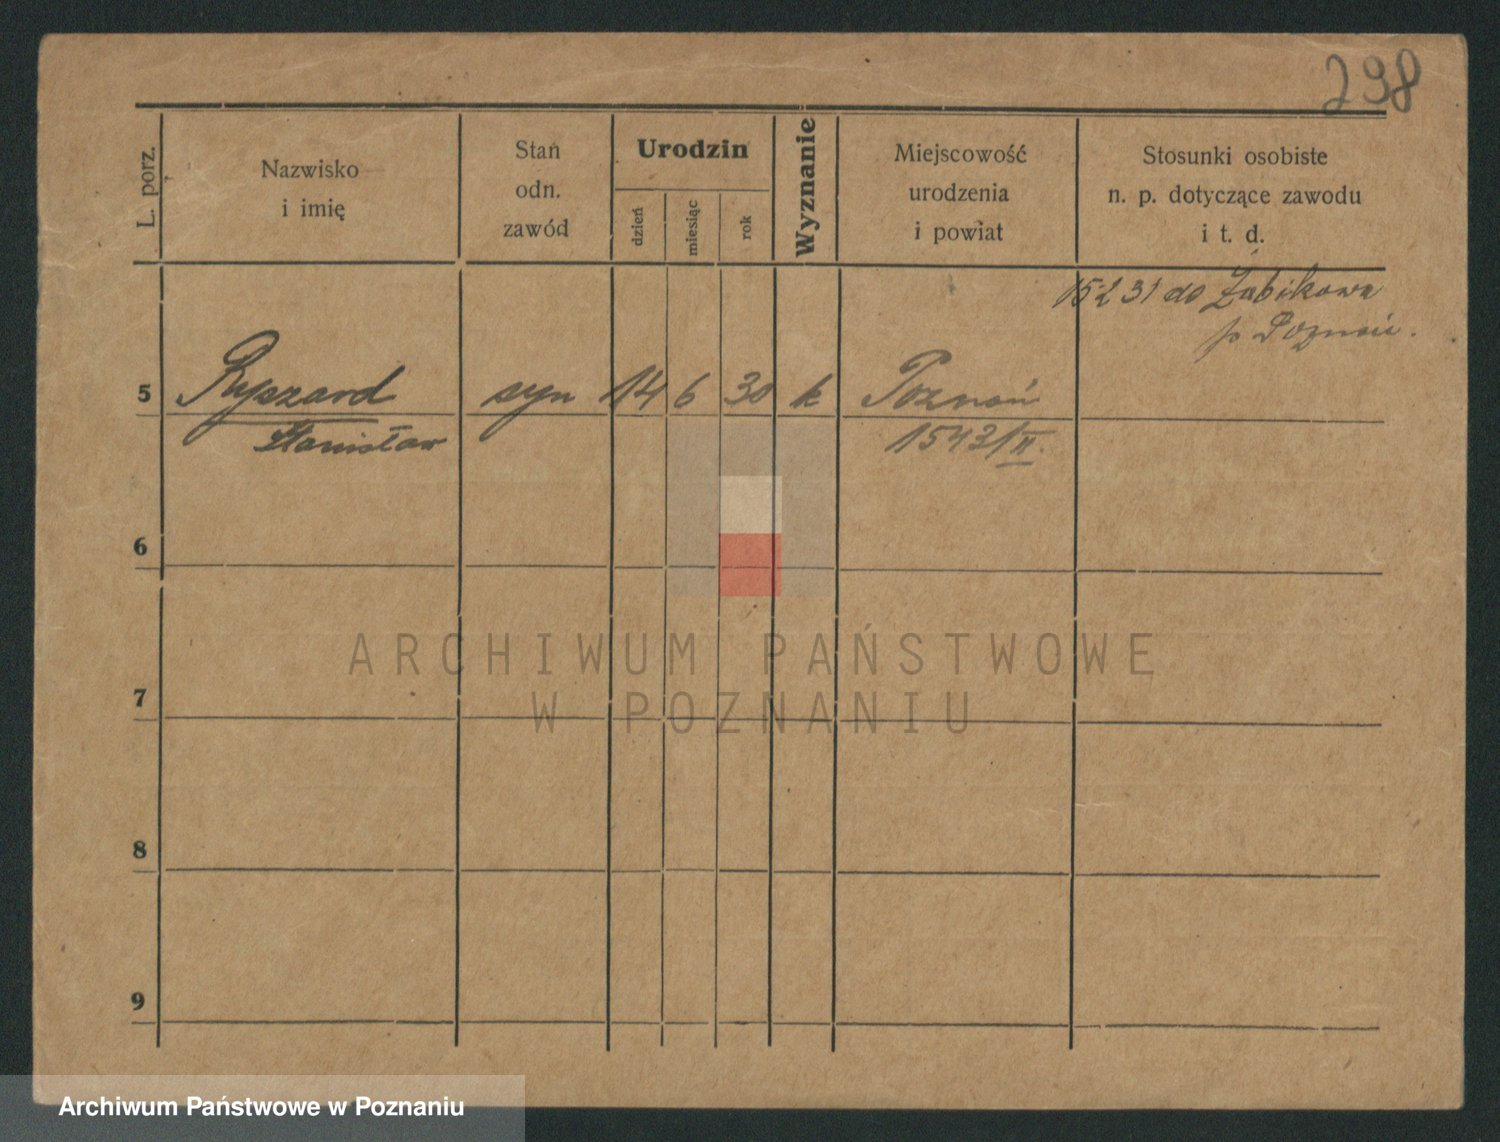 298
L. porz.
Nazwisko
i imię
Stan
odn.
zawód
Urodzin
dzień
miesiąc
rok
Wyznanie
Miejscowość
urodzenia
i powiat
Stosunki osobiste
n. p. dotyczące zawodu
i t. d.
15 2 31 do Żabikowa
p Poznań.
5 Ryszard syn 14 6 30 k Poznań
Stanisław 1543/II.
6
7
8
9
ARCHIWUM PAŃSTWOWE
W POZNANIU
Archiwum Państwowe w Poznaniu